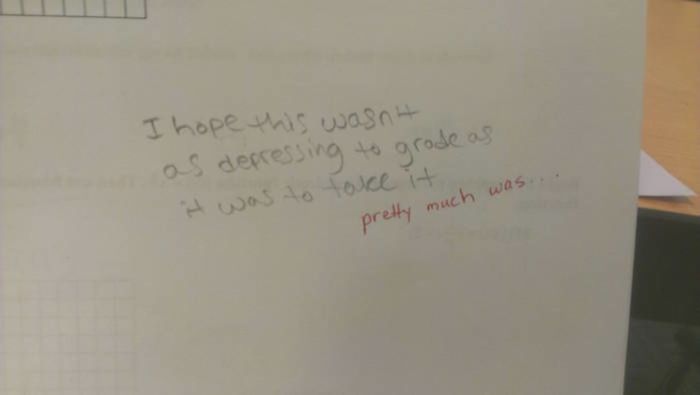 I hope this wasn't
as depressing to grade as
it was to take it
pretty much was...